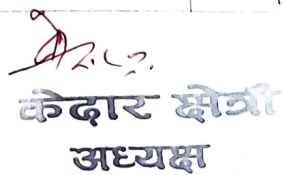 केदार क्षेत्री
अध्यक्ष